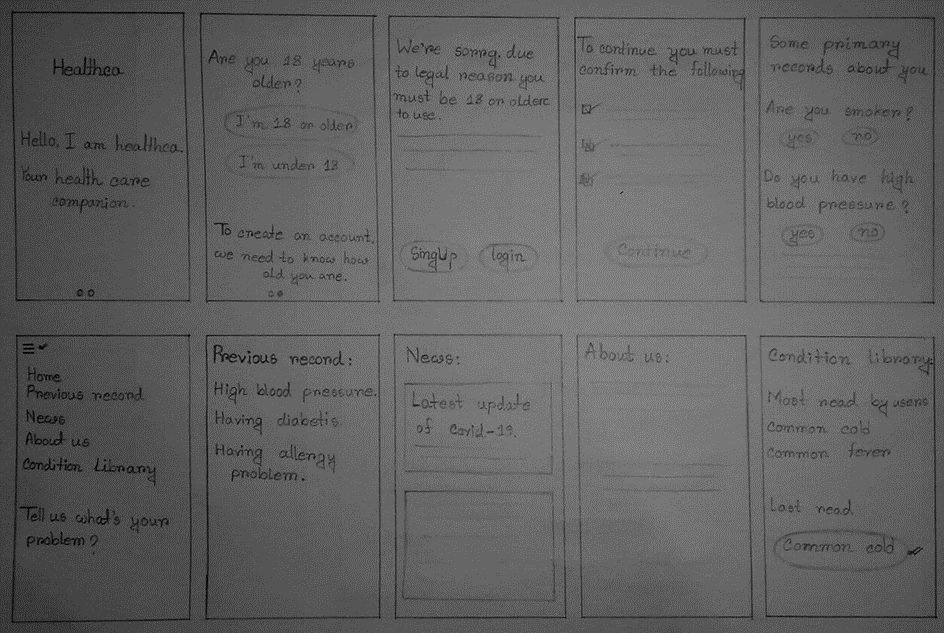 Healthea
Hello, I am healthea.
Your health care
companion.
Are you 18 years
older?
I'm 18 or older
I'm under 18
To create an account,
we need to know how
old you are.
We're sorry, due
to legal reason you
must be 18 or older
to use.
SingUp
login
To continue you must
confirm the following
Continue
Some primary
records about you
Are you smoker?
yes
no
Do you have high
blood pressure?
yes
no
Home
Previous record
News
About us
Condition Library
Tell us what's your
problem?
Previous record:
High blood pressure.
Having diabetis.
Having allergy
problem.
News:
Latest update
of Covid-19.
About us:
Condition library:
Most read by users
Common cold
Common fever
Last read
Common cold